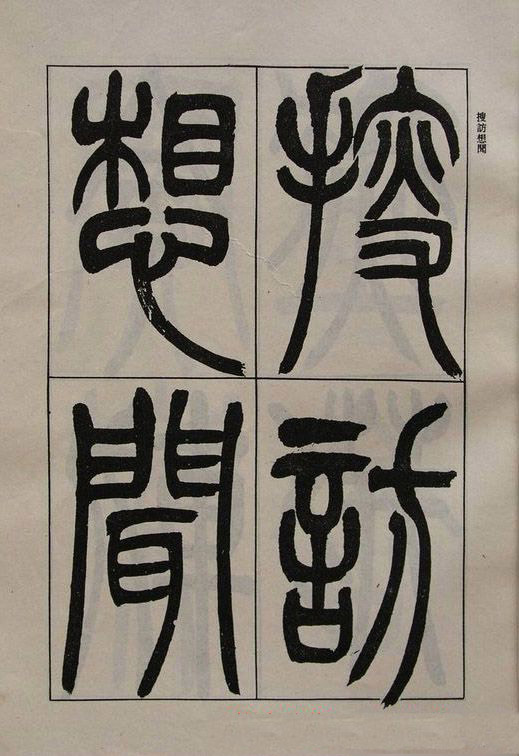 搜訪
想聞
搜訪想聞